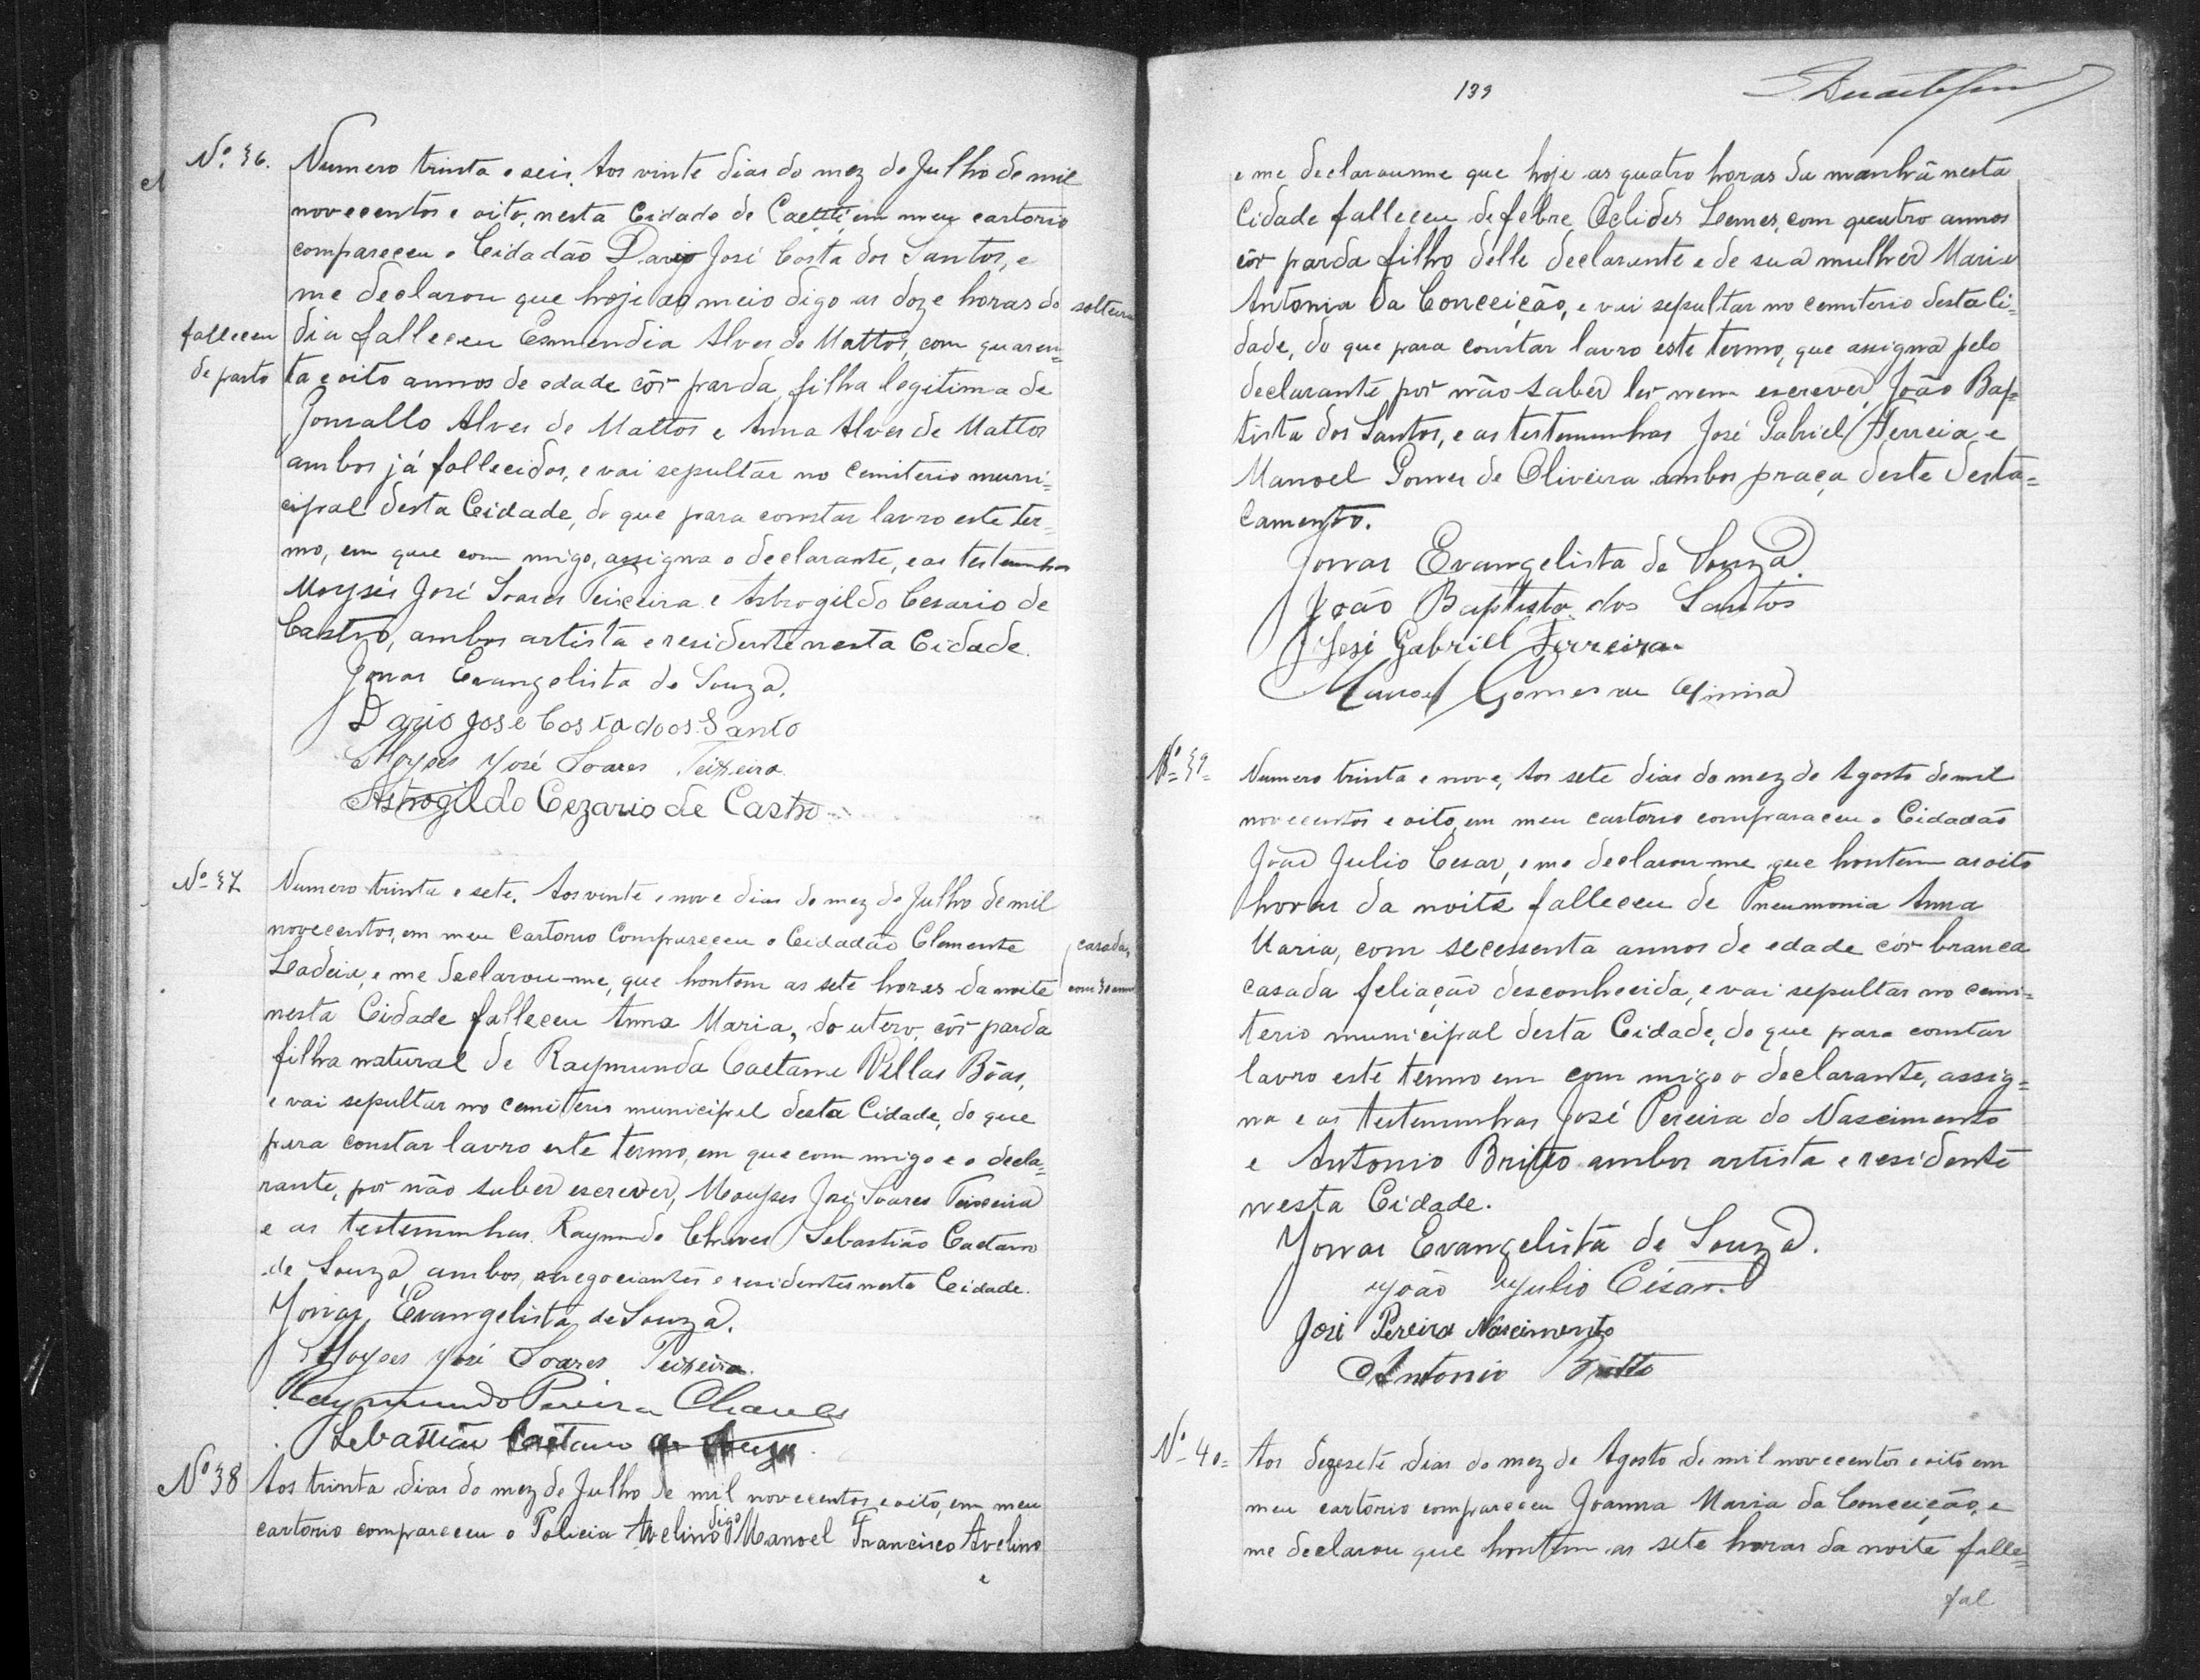 Nº 36. Numero trinta e seis. Aos vinte dias do mez de Julho de mil
novecentos e oito, nesta Cidade de Caetité em meu cartorio
compareceu o Cidadão Dario José Costa dos Santos, e
me declarou que hoje ao meio digo as doze horas do solteira
falleceu dia falleceu Esmendia Alves de Mattos, com quaren-
de parto ta e oito annos de edade côr parda, filha legitima de
Gonsallo Alves de Mattos e Anna Alves de Mattos
ambos já fallecidos, e vai sepultar no Cemiterio muni-
cipal desta Cidade, do que para constar lavro este ter-
mo, em que com migo, assigna o declarante, e as testemunhas
Moysés José Soares Teixeira e Astrogildo Cesario de
Castro, ambos artista e residente nesta Cidade.
Jonas Evangelista de Souza.
Dario José Costa doos Santo
Moyses José Soares Teixeira
Astrogildo Cezario de Castro
Nº 37 Numero trinta e sete. Aos vinte e nove dias do mez de Julho de mil
novecentos, em meu Cartorio Compareceu o Cidadão Clemente casada,
Ladeia, e me declarou-me, que hontem as sete horas da noite com 30 annos
nesta Cidade falleceu Anna Maria, do utero, côr parda
filha natural de Raymunda Caetana Villas Bôas,
e vai sepultar no Cemiterio municipal desta Cidade, do que
para constar lavro este termo, em que com migo e o decla-
rante, por não saber escrever, Mouyses José Soares Teixeira
e as testemunhas Raymundo Chaves Sebastião Caetano
de Souza, ambos negociantes e residentes nesta Cidade.
Jonas Evangelista de Souza.
Moyses José Soares Teixeira.
Raymundo Pereira Chaves
Sebastião Caetano de Souza
Nº 38 Aos trinta dias do mez de Julho de mil novecentos e oito, em meu
cartorio compareceu o Policia Avelino digo Manoel Francisco Avelino
e
139
e me declarou-me que hoje as quatro horas da manhã nesta
Cidade falleceu de febre Oclides Lemes, com quatro annos
côr parda filho delle declarante e de sua mulher Maria
Antonia da Conceição, e vai sepultar no cemiterio desta Ci-
dade, do que para constar lavro este termo, que assigna pelo
declarante por não saber ler nem escrever João Bap-
tista dos Santos, e as testemunhas José Gabriel Ferreia e
Manoel Gomes de Oliveira ambos praça deste desta-
camento.
Jonas Evangelista de Souza.
João Baptista dos Santos
José Gabriel Ferreira
Manoel Gomes
Nº 39 Numero trinta e nove, Aos sete dias do mez de Agosto de mil
novecentos e oito, em meu cartorio comparaceu o Cidadão
João Julio Cesar, e me declarou-me que hontem as oito
horas da noite falleceu de Pneumonia Anna
Maria, com secessenta annos de edade côr branca
casada feliação desconhecida, e vai sepultar no cemi-
terio municipal desta Cidade, do que para constar
lavro este termo em com migo o declarante, assig-
na e as testemunhas José Pereira do Nascimento
e Antonio Britto ambos artista e residente
nesta Cidade.
Jonas Evangelista de Souza.
João Julio César.
José Pereira Nascimento
Antonio Britto
Nº 40 Aos dezesete dias do mez de Agosto de mil novecentos e oito em
meu cartorio compareceu Joanna Maria da Conceição, e
me declarou que hontem as sete horas da noite falle-
fal